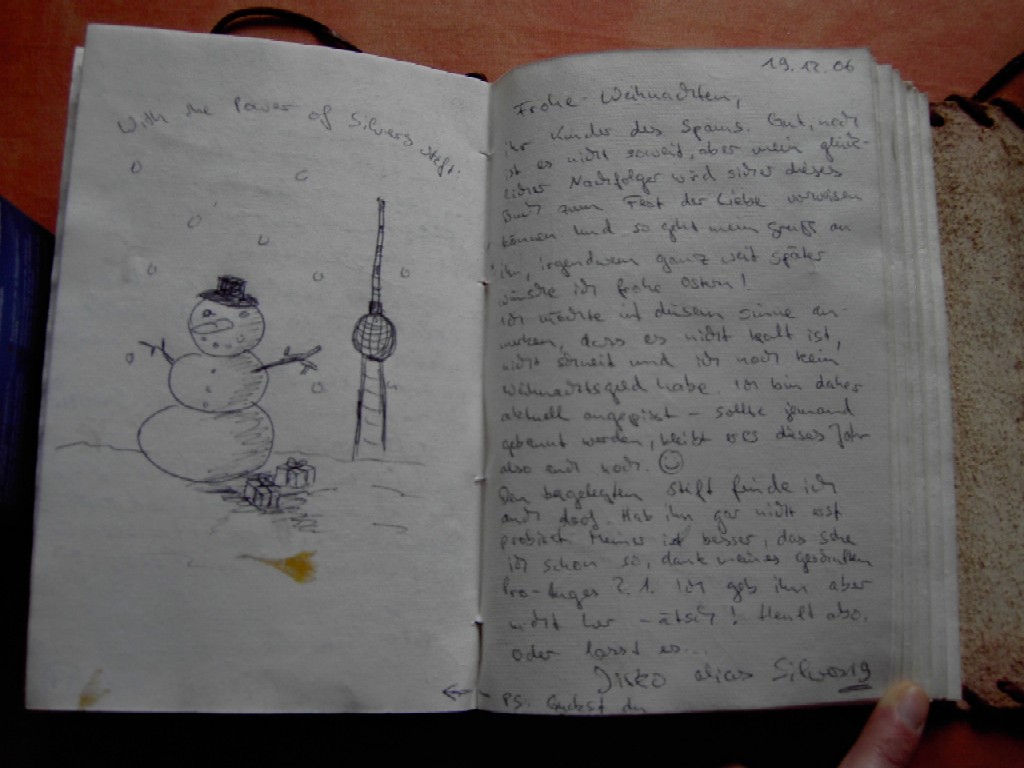 With the Power of Silvers Stift.
19.12.06
Frohe Weihnachten,
ihr Kinder des Spams. Gut, noch
ist es nicht soweit, aber mein glück-
licher Nachfolger wird sicher dieses
Buch zum Fest der Liebe vorweisen
können und so geht mein Gruß an
ihn, irgendwem ganz weit später
wünsche ich frohe Ostern!
Ich möchte in diesem Sinne an-
merken, dass es nicht kalt ist,
nicht schneit und ich noch kein
Weihnachtsgeld habe. Ich bin daher
aktuell angepisst – sollte jemand
gebannt werden, bleibt er es dieses Jahr
also auch noch. ☺
Den beigelegten Stift finde ich
auch doof. Hab ihn gar nicht erst
probiert. Meiner ist besser, das sehe
ich schon so, dank meines geschulten
Pro-Auges 2.1. Ich geb ihn aber
nicht her – ätsch! Heult also,
oder lasst es...
alias Silver19
←
PS. Guckst du